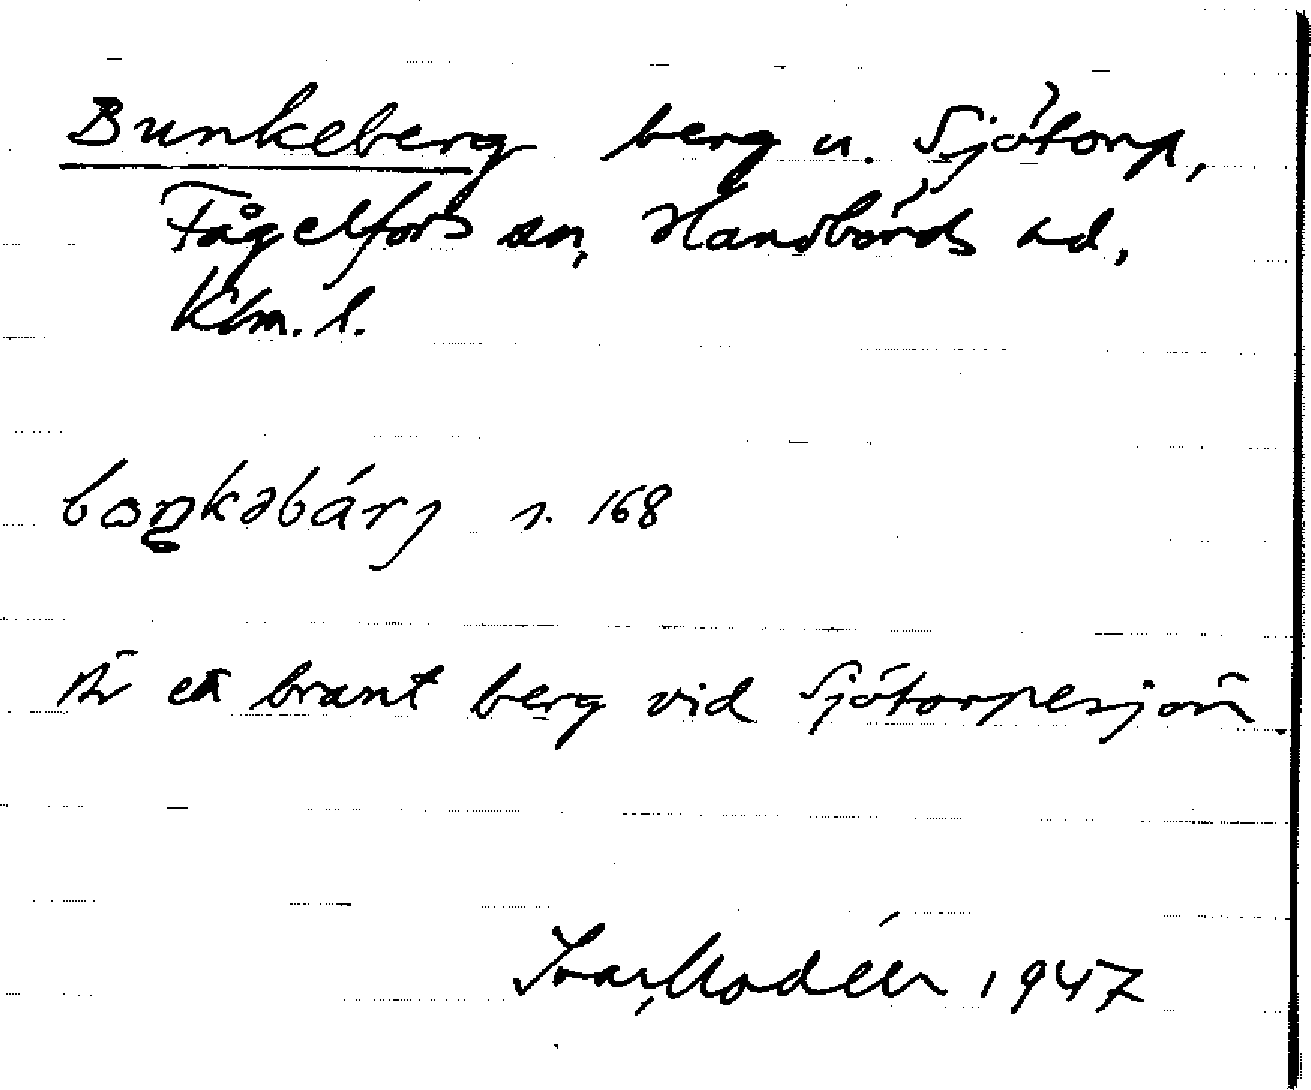 Bunkeberg berg u. Sjötorp,
Fågelfors sn, Handbörds hd,
Klm. l.
bⱺŋkəbárj s. 168
Är ett brant berg vid Sjötorpesjön
Ivar Modéer 1947